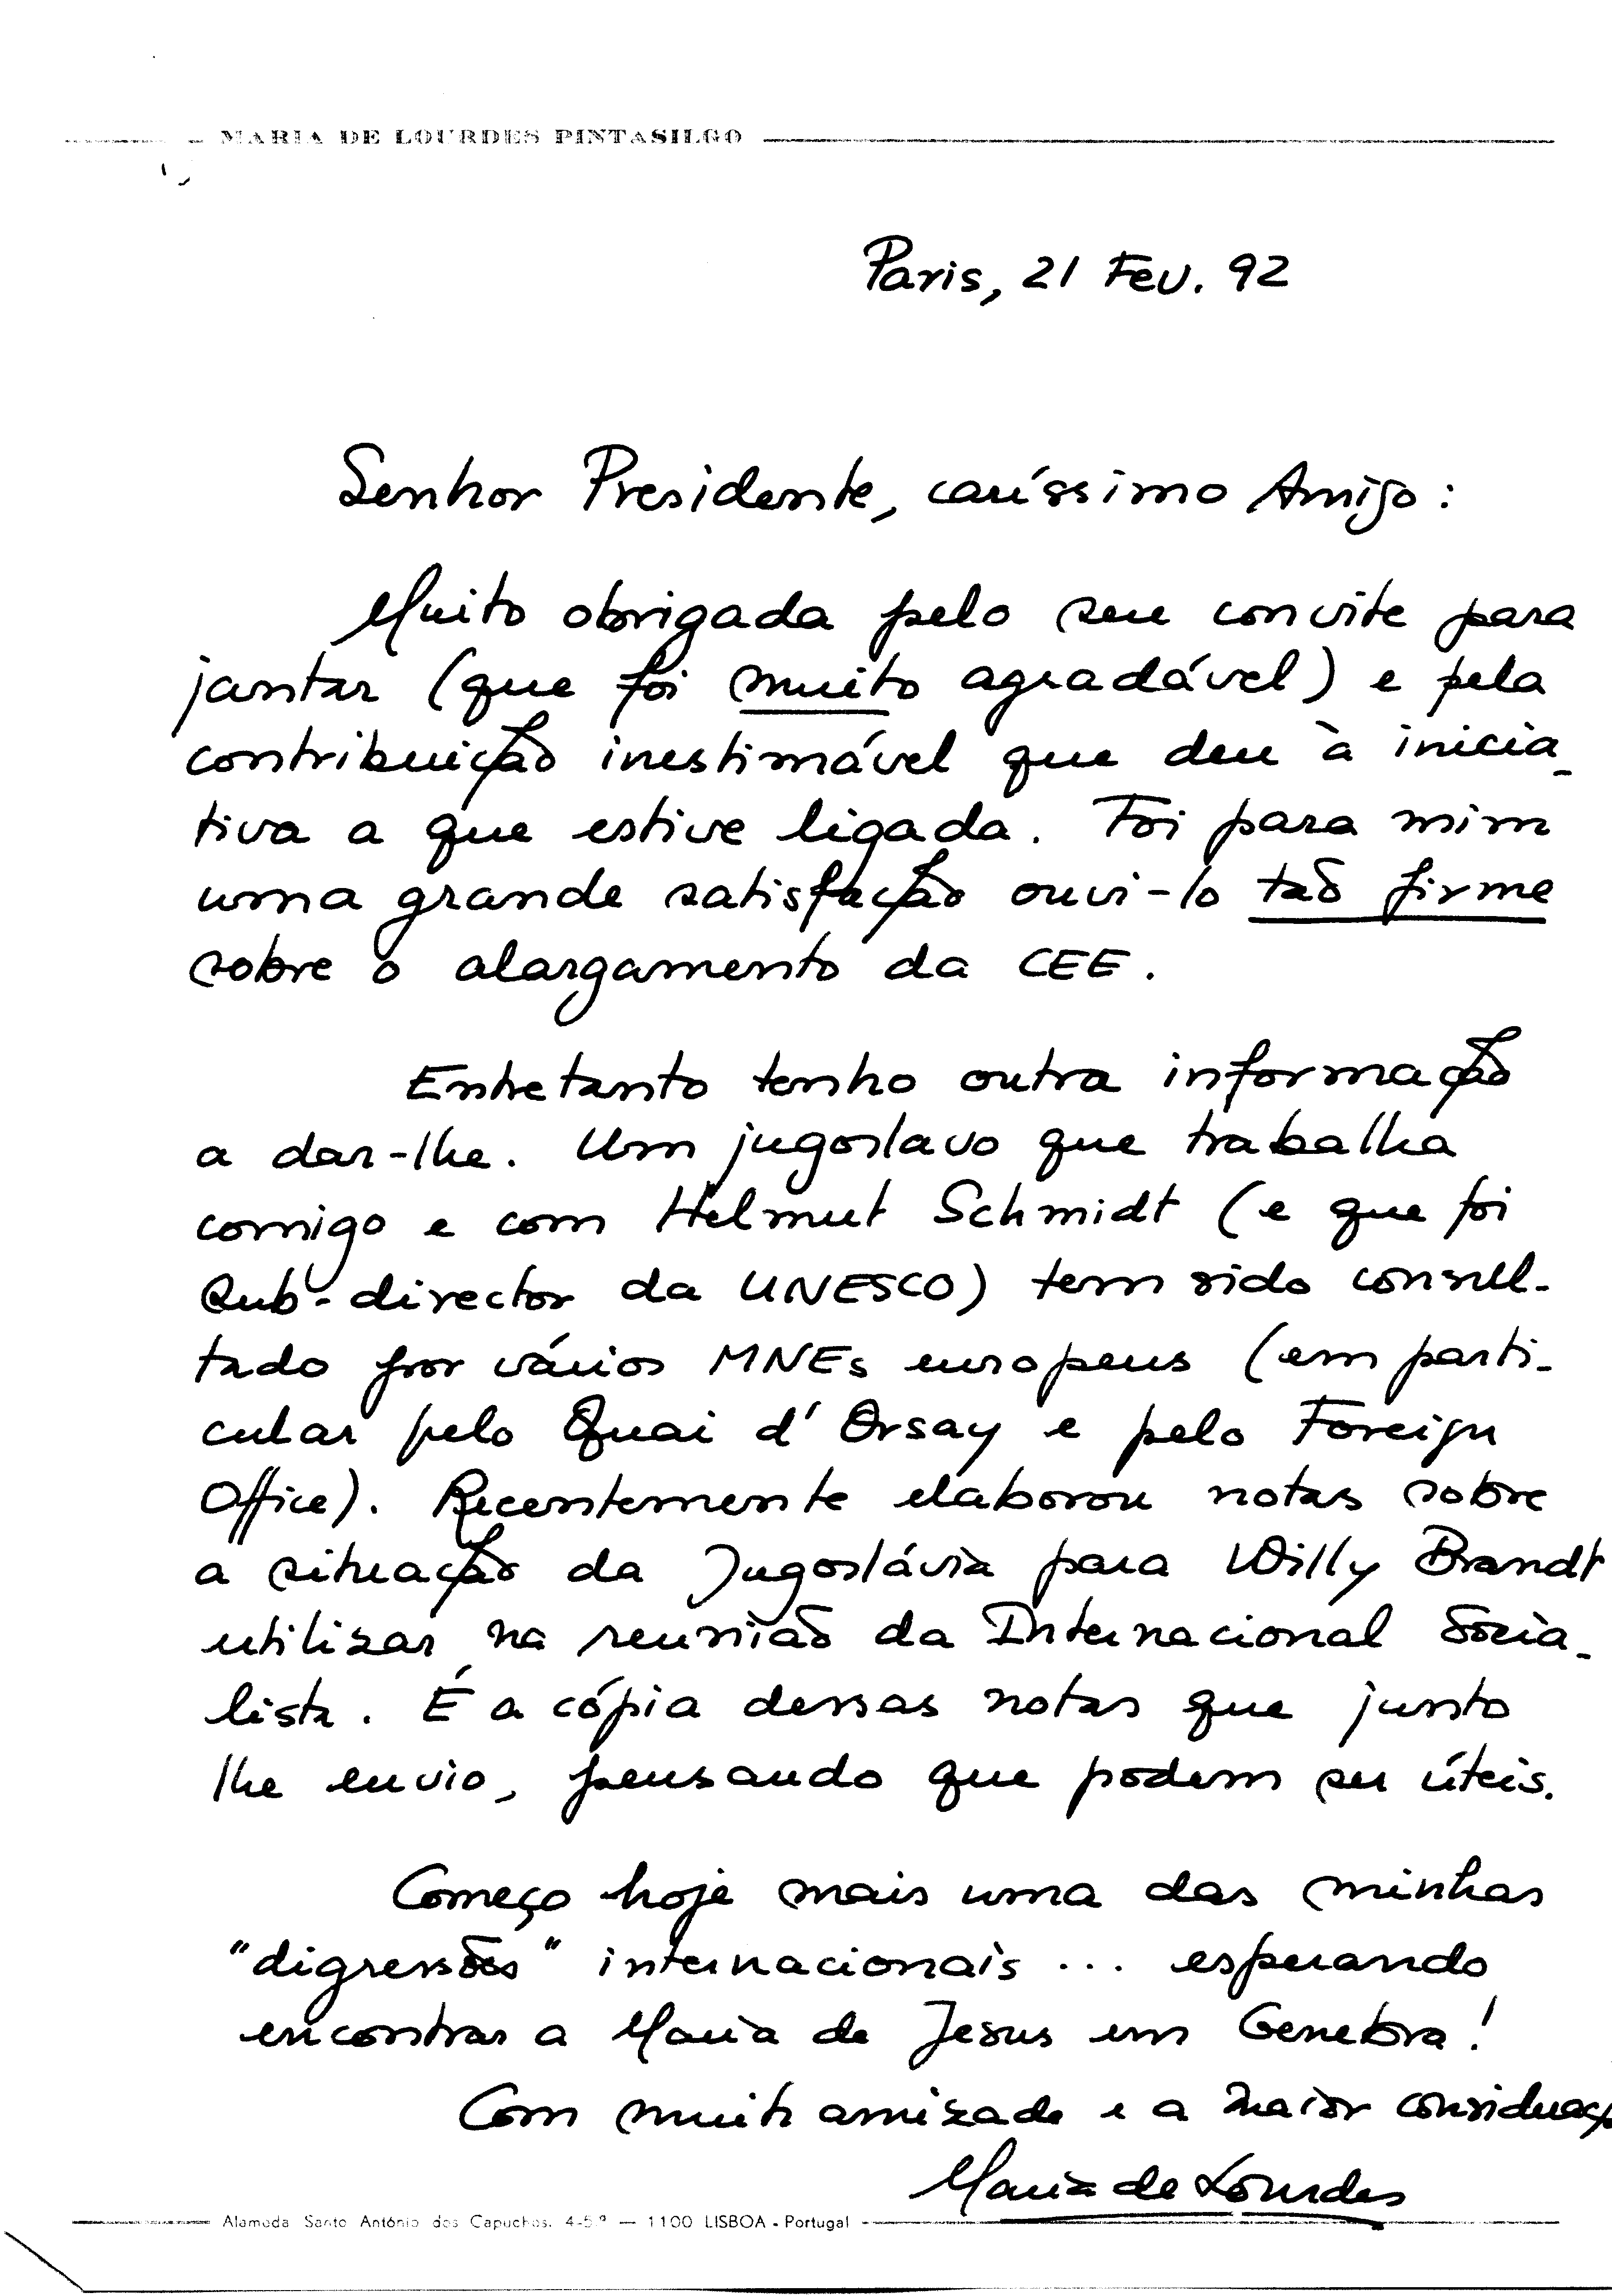 MARIA DE LOURDES PINTASILGO
Paris, 21 Fev. 92
Senhor Presidente, caríssimo Amigo:
Muito obrigada pelo seu convite para
jantar (que foi muito agradável) e pela
contribuição inestimável que deu à inicia-
tiva a que estive ligada. Foi para mim
uma grande satisfação ouvi-lo tão firme
sobre o alargamento da CEE.
Entretanto tenho outra informação
a dar-lhe. Um jugoslavo que trabalha
comigo e com Helmut Schmidt (e que foi
Sub-director da UNESCO) tem sido consul-
tado por vários MNEs europeus (em parti-
cular pelo Quai d'Orsay e pelo Foreign
Office). Recentemente elaborou notas sobre
a situação da Jugoslávia para Willy Brandt
utilizar na reunião da Internacional Socia-
lista. É a cópia dessas notas que junto
lhe envio, pensando que podem ser úteis.
Começo hoje mais uma das minhas
"digressões" internacionais... esperando
encontrar a Maria de Jesus em Genebra!
Com muita amizade e a maior consideraç
Maria de Lourdes
Alameda Santo António dos Capuchos, 4-5.º — 1100 LISBOA - Portugal